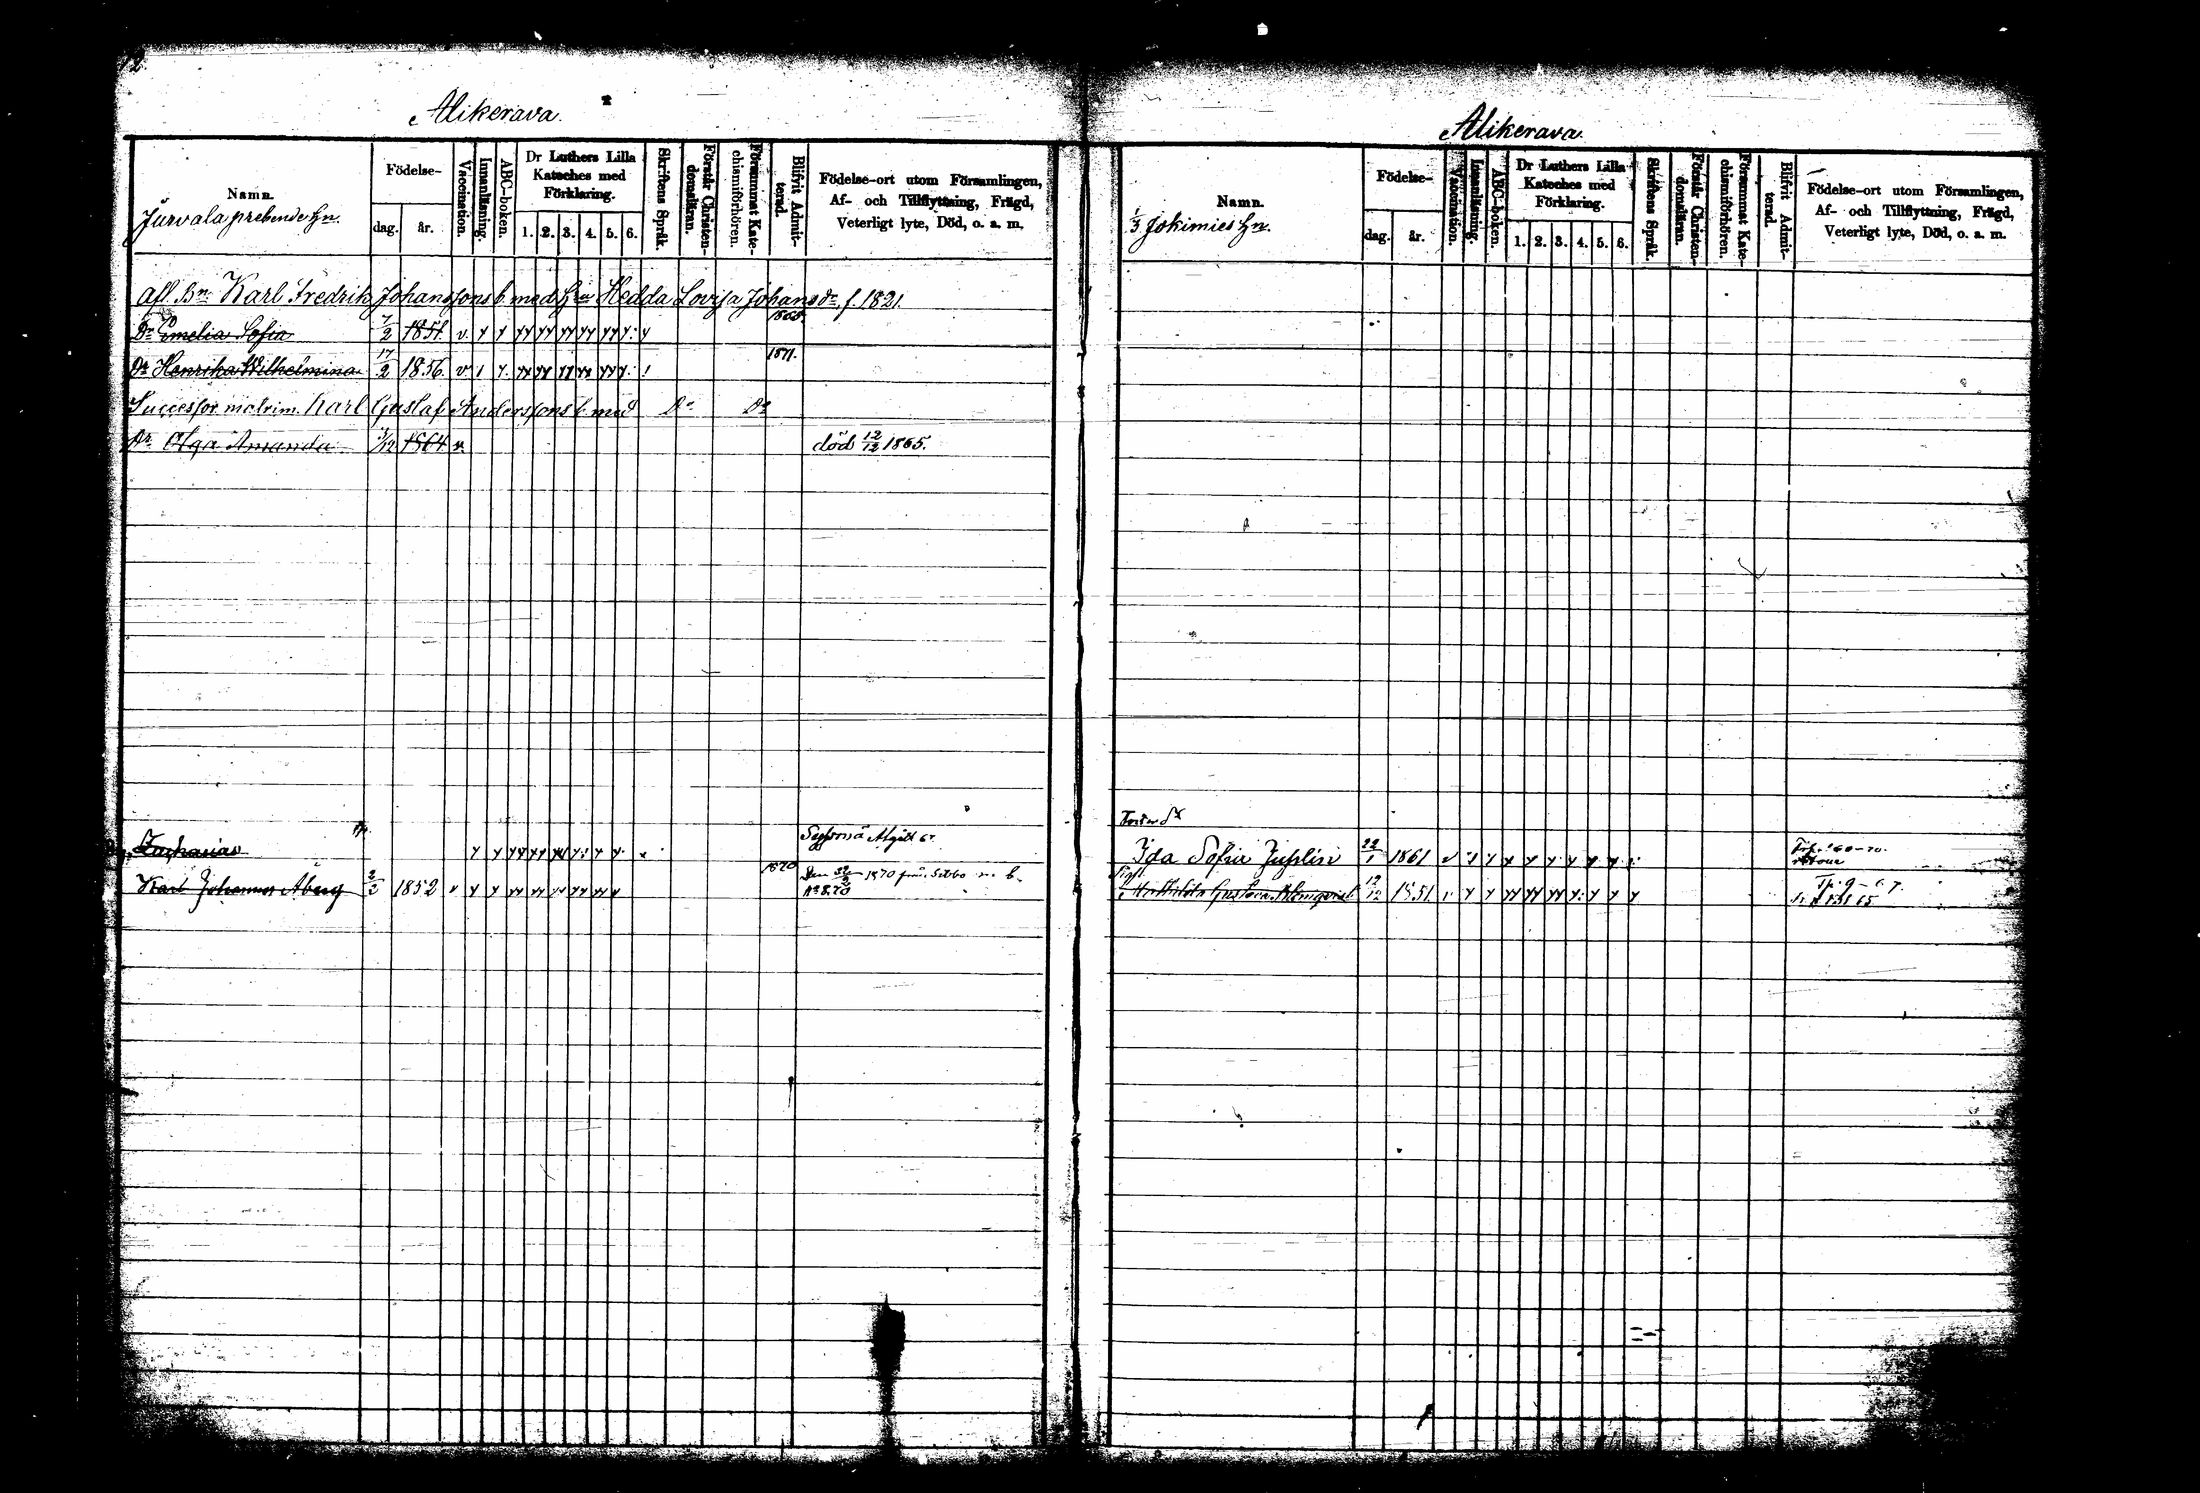 12.
Alikerava.
Namn.
Jurvala prebende Hn.
Födelse-
dag. år.
Vaccination.
Innanläsning.
ABC-boken.
Dr Luthers Lilla Kateches med Förklaring.
1. 2. 3. 4. 5. 6.
Skriftens Språk.
Förstår Christen-domsläran.
Försummat Kate-chismiförhören.
Blifvit Admit-terad.
Födelse-ort utom Församlingen,
Af- och Tillflyttning, Frägd,
Veterligt lyte, Död, o. a. m.
Afl. Bn Karl Fredrik Johanssons b. med Hu Hedda Lovisa Johansdr f. 1821.
Dr Emelia Sofia 7/2 1851. v. 1868.
Dr Henrika Wilhelmina 17/2 1856. v. 1871.
Successor matrim. Karl Gustaf Anderssons b. med Do Do
Dr Olga Amanda 1/12 1864 v. död 12/12 1865.
Zacharias
Karl Johannes Åberg 2/3 1852 v 1870
Alikerava
Namn.
1/3 Jokimies Hn.
Födelse-
dag. år.
Vaccination.
Innanläsning.
ABC-boken.
Dr Luthers Lilla Kateches med Förklaring.
1. 2. 3. 4. 5. 6.
Skriftens Språk.
Förstår Christen-domsläran.
Försummat Kate-chismiförhören.
Blifvit Admit-terad.
Födelse-ort utom Församlingen,
Af- och Tillflyttning, Frägd,
Veterligt lyte, Död, o. a. m.
Ida Sofia Juslin 22/1 1861 v
Gustava Blomqvist 12/12 1851.